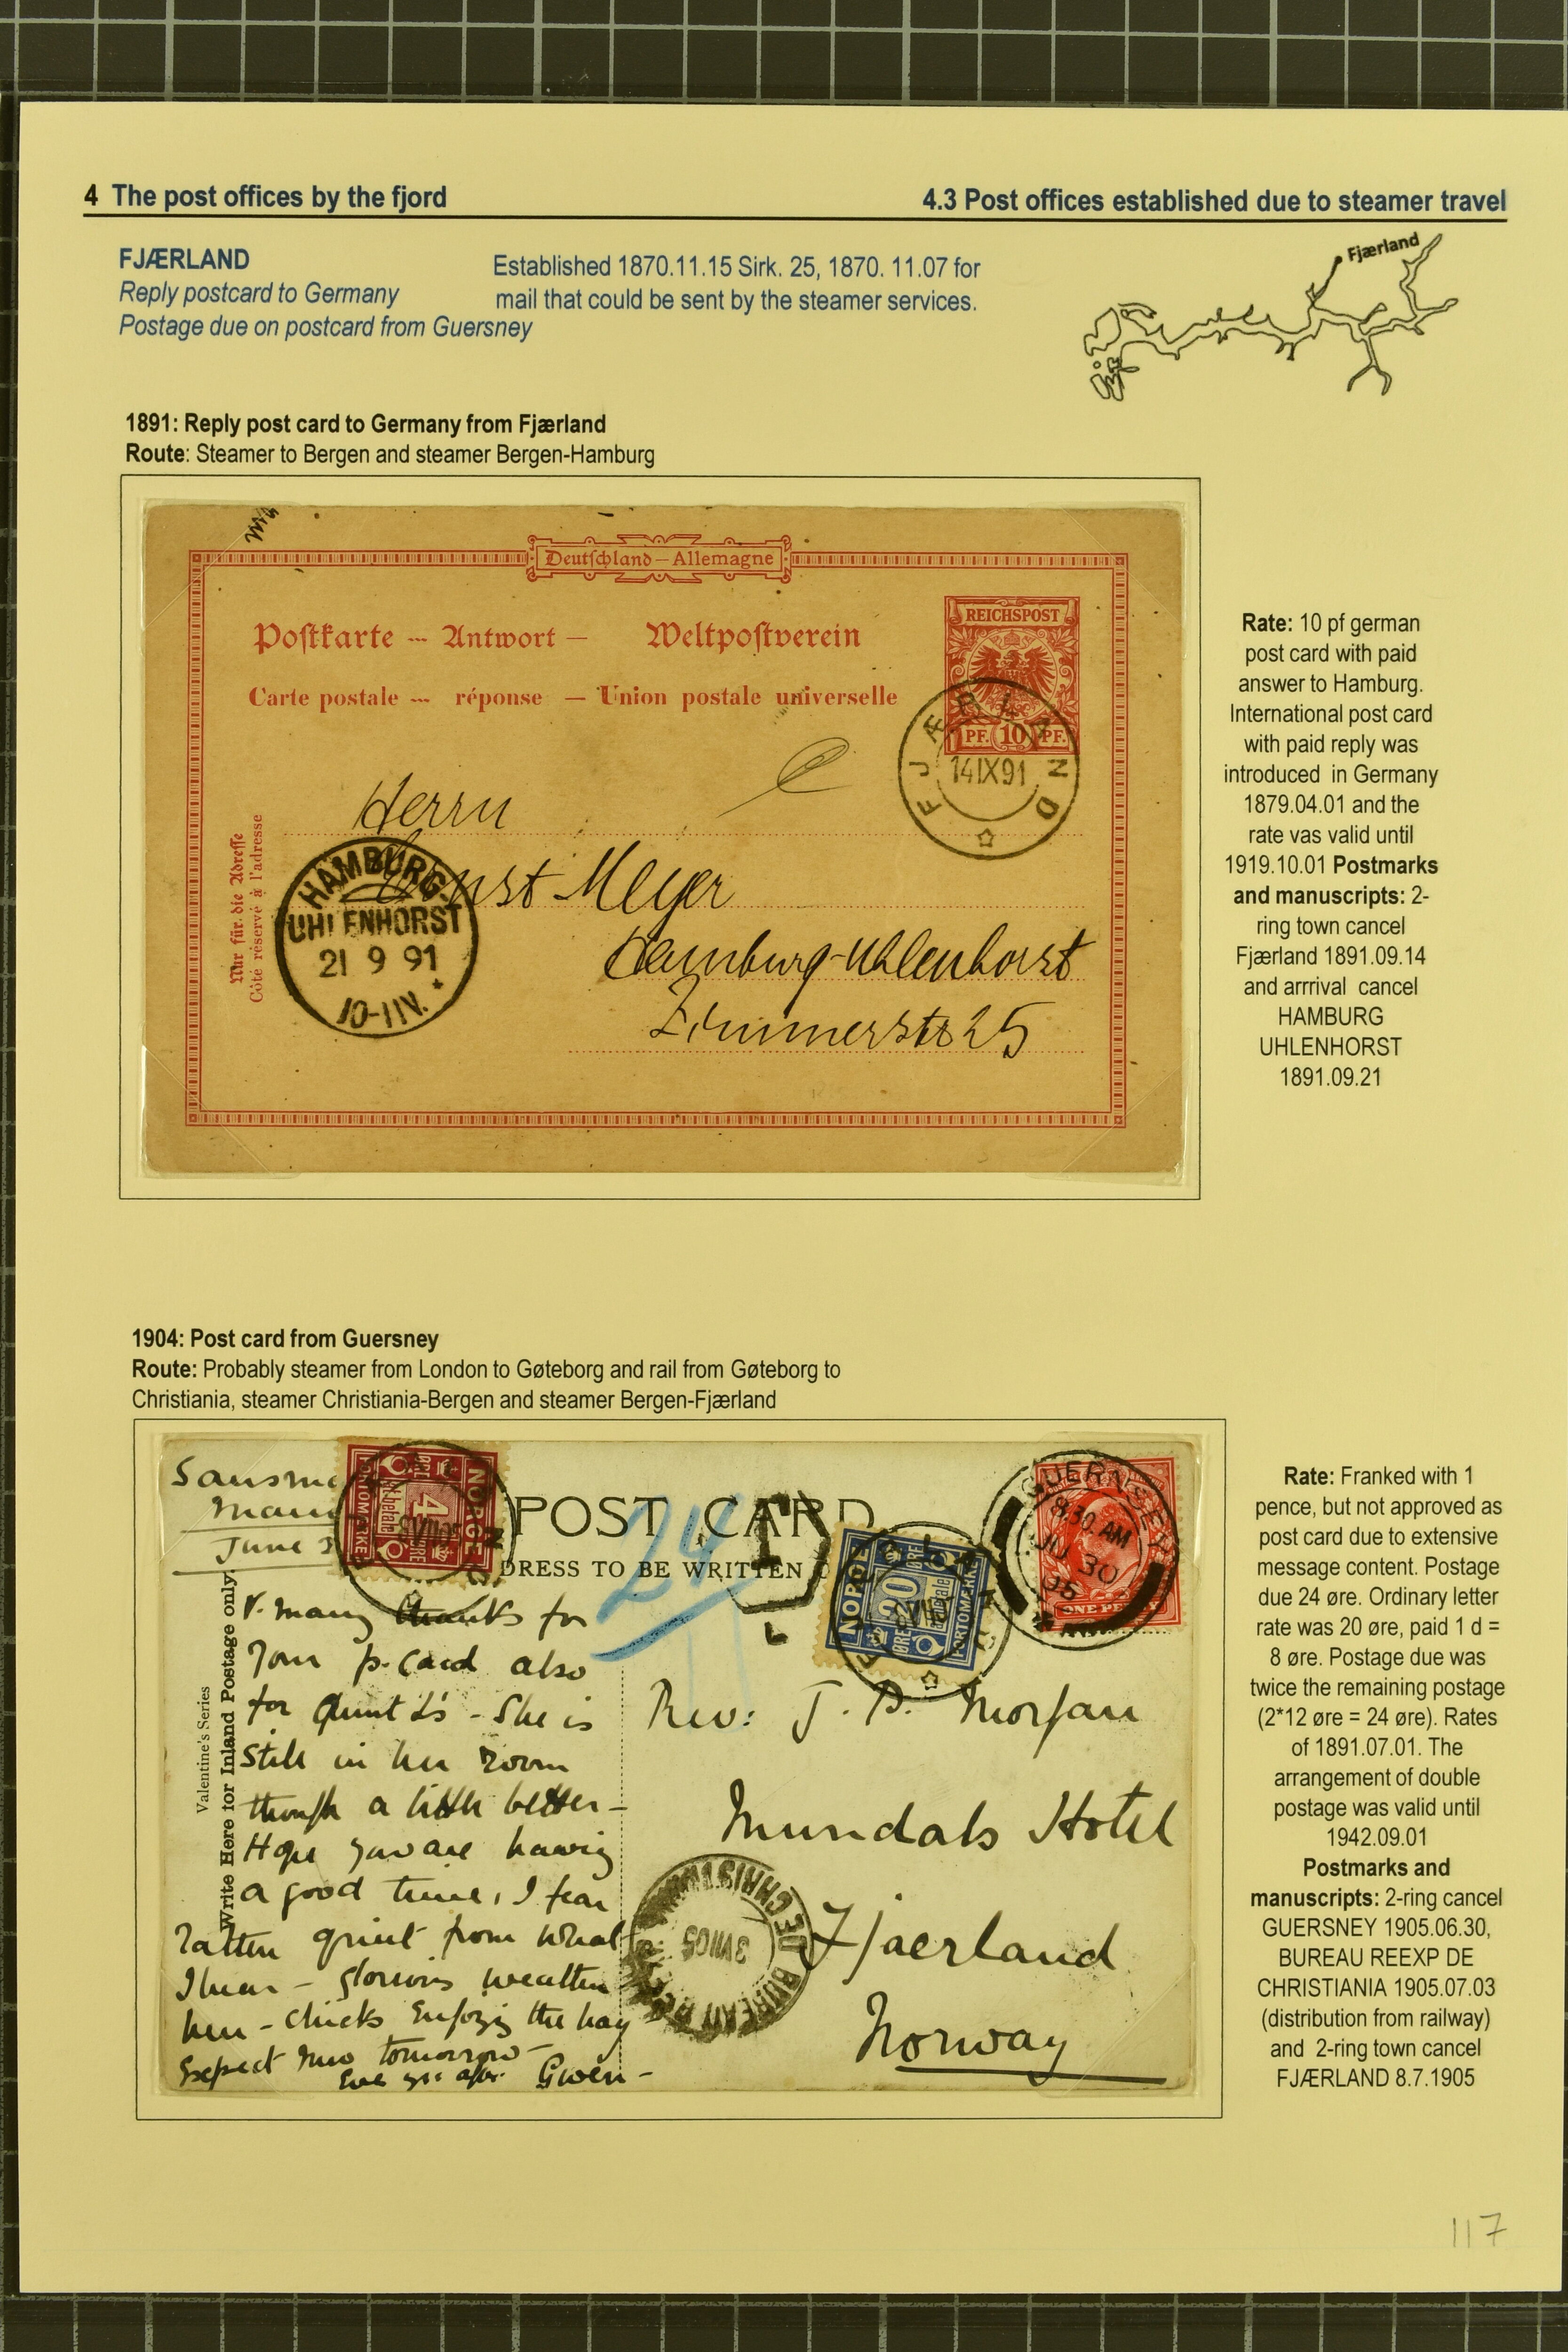 4 The post offices by the fjord
4.3 Post offices established due to steamer travel
FJÆRLAND
Reply postcard to Germany
Postage due on postcard from Guersney
Established 1870.11.15 Sirk. 25, 1870. 11.07 for
mail that could be sent by the steamer services.
Fjærland
1891: Reply post card to Germany from Fjærland
Route: Steamer to Bergen and steamer Bergen-Hamburg
Deutschland – Allemagne
Postkarte – Antwort – Weltpostverein
Carte postale – réponse – Union postale universelle
REICHSPOST
PF. 10 PF.
FJÆRLAND
14 IX 91
Nur für die Adresse
Côté réservé à l'adresse
Herrn
Ernst Meyer
Hamburg-Uhlenhorst
Zimmerstr 25
HAMBURG-
UHLENHORST
21 9 91
10-11V.
Rate: 10 pf german
post card with paid
answer to Hamburg.
International post card
with paid reply was
introduced in Germany
1879.04.01 and the
rate vas valid until
1919.10.01 Postmarks
and manuscripts: 2-
ring town cancel
Fjærland 1891.09.14
and arrrival cancel
HAMBURG
UHLENHORST
1891.09.21
1904: Post card from Guersney
Route: Probably steamer from London to Gøteborg and rail from Gøteborg to
Christiania, steamer Christiania-Bergen and steamer Bergen-Fjærland
POST CARD
DRESS TO BE WRITTEN
24
T
L
NORGE
4
ØRE
PORTOMÆRKE
NORGE
20
ØRE
PORTOMÆRKE
GUERNSEY
8.30 AM
JU 30
05
ONE PENNY
Valentine's Series
Write Here for Inland Postage only.
June
V. many thanks for
your p. card also
for Aunt L's - She is
still in her room
though a little better -
Hope you are having
a good time, I fear
rather quiet from what
I hear - glorious weather
here - chicks enjoying the hay
expect two tomorrow -
Gwen -
Rev: J. D. Morgan
Mundals Hotel
Fjaerland
Norway
3 VII 05
Rate: Franked with 1
pence, but not approved as
post card due to extensive
message content. Postage
due 24 øre. Ordinary letter
rate was 20 øre, paid 1 d =
8 øre. Postage due was
twice the remaining postage
(2*12 øre = 24 øre). Rates
of 1891.07.01. The
arrangement of double
postage was valid until
1942.09.01
Postmarks and
manuscripts: 2-ring cancel
GUERSNEY 1905.06.30,
BUREAU REEXP DE
CHRISTIANIA 1905.07.03
(distribution from railway)
and 2-ring town cancel
FJÆRLAND 8.7.1905
117